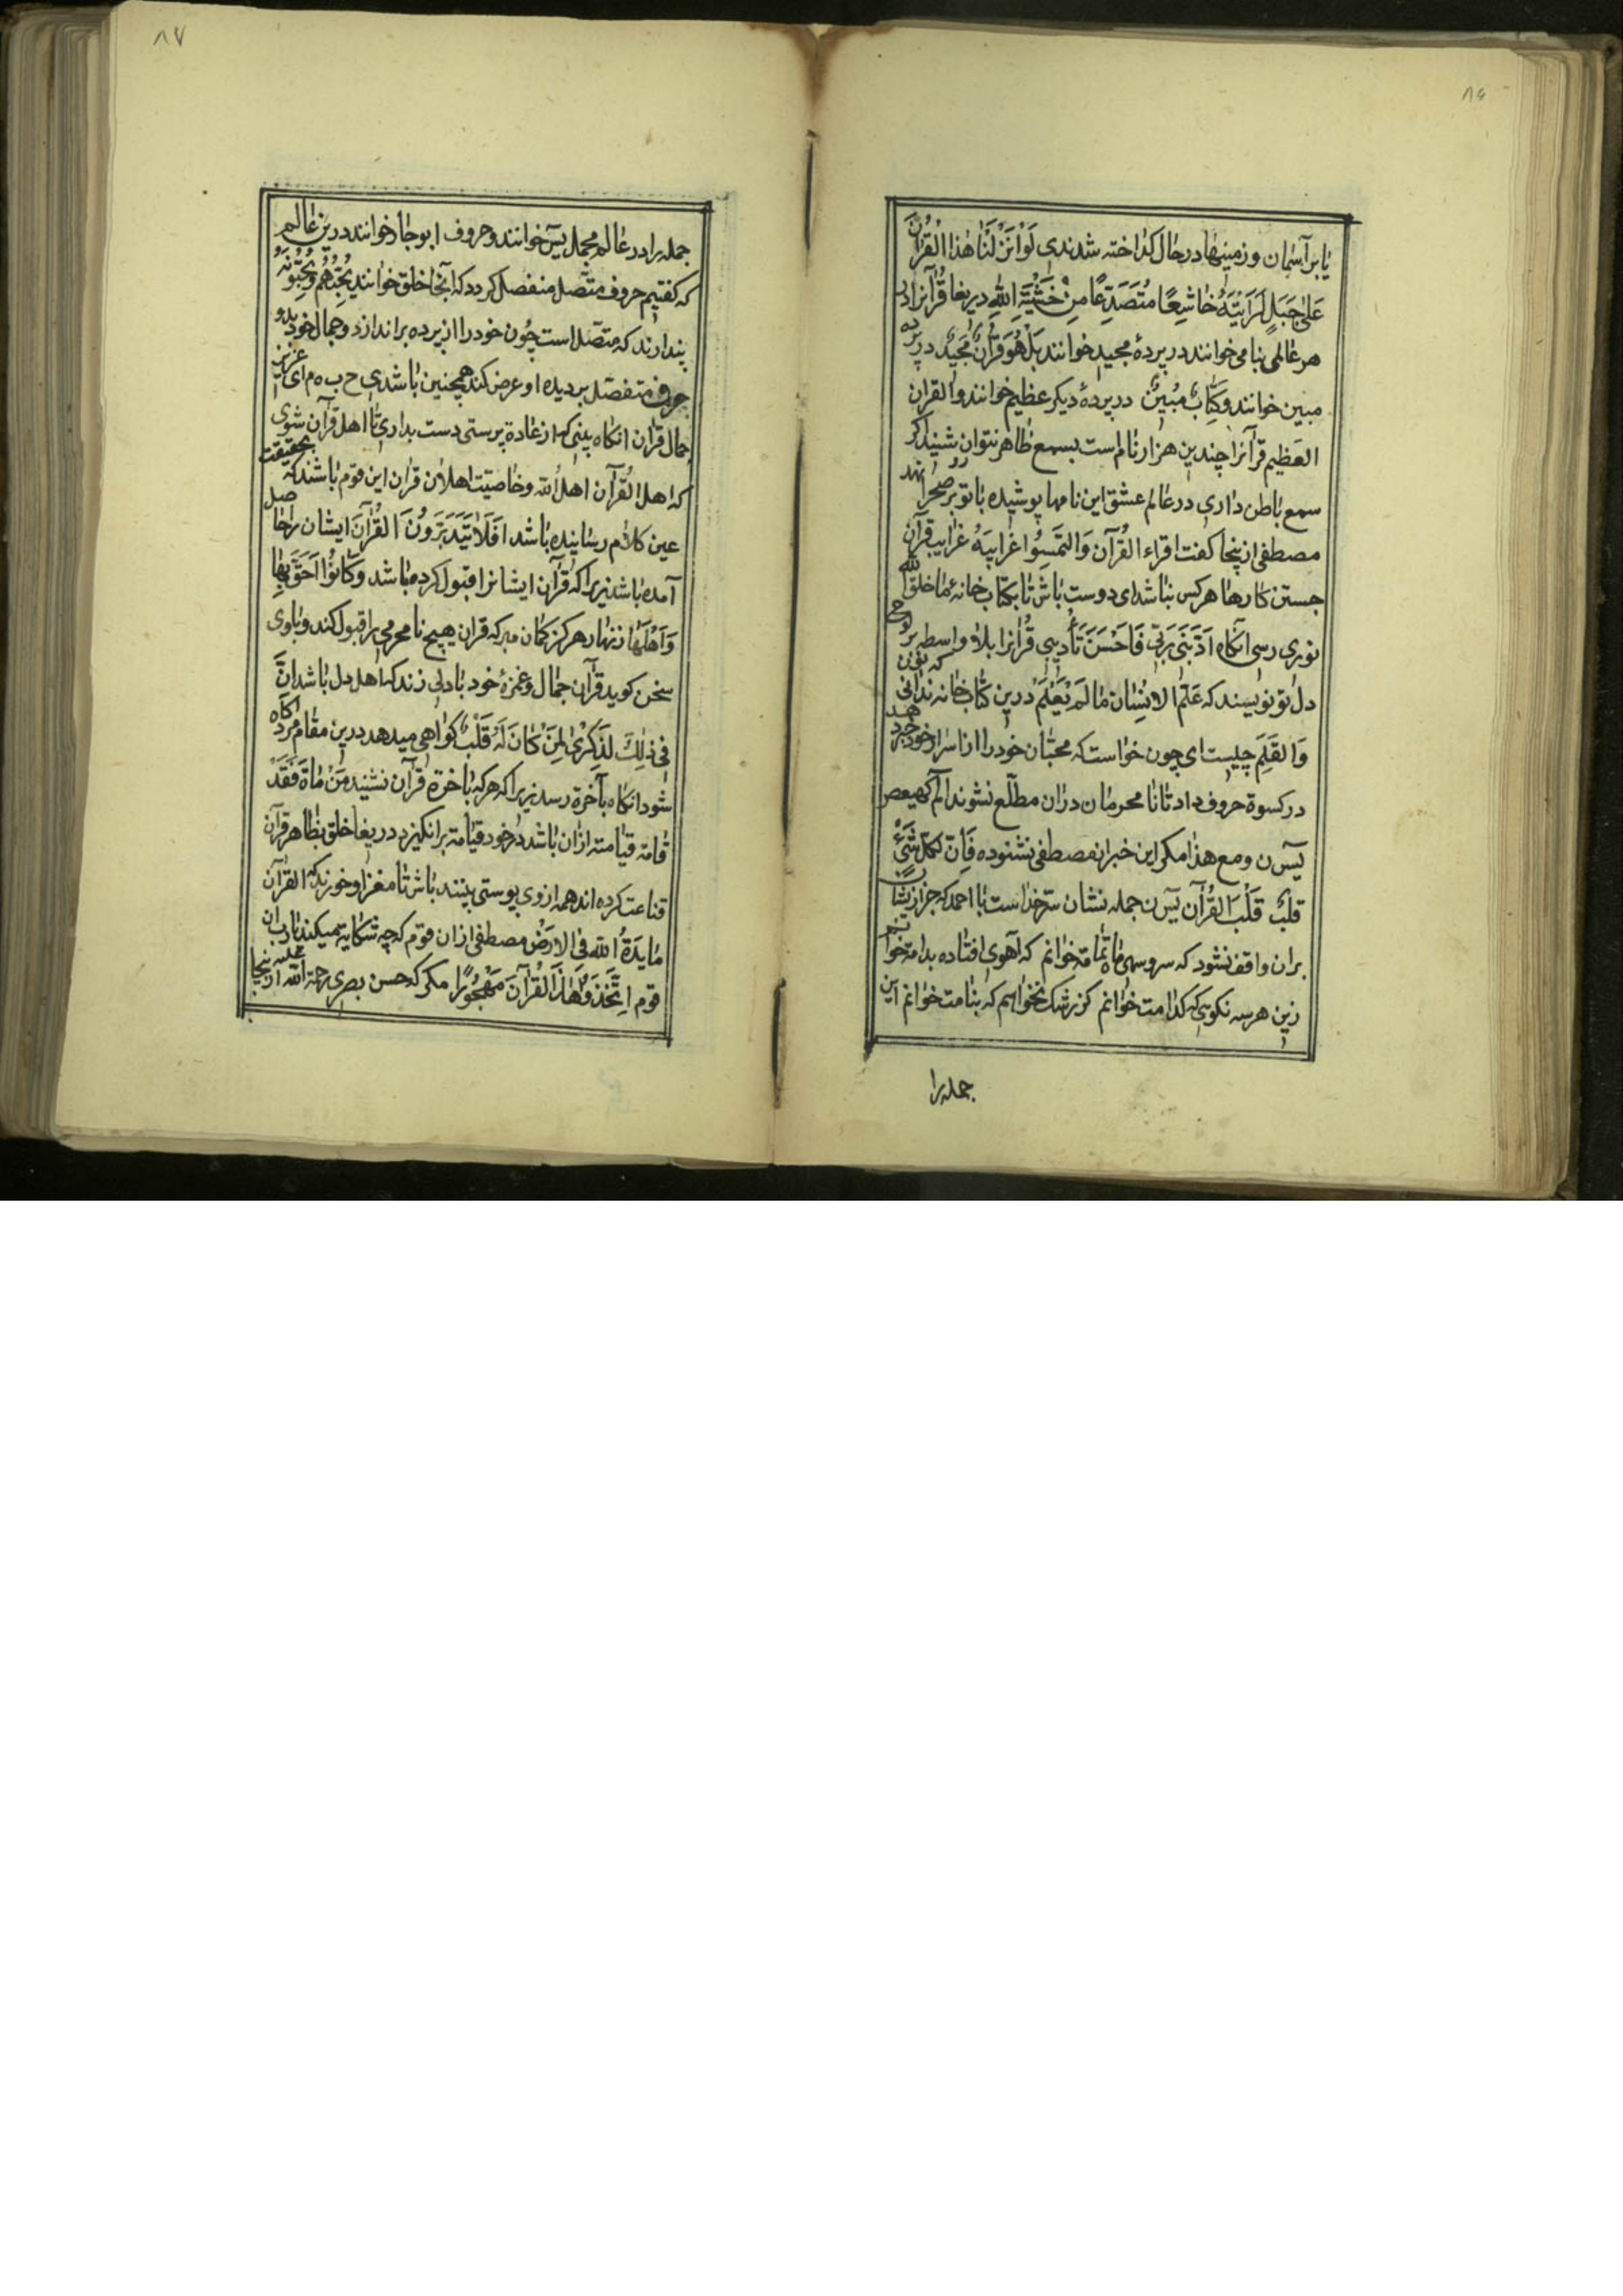 ۸۶
یا بر آسمان و زمینها در حال کداخته شدندی لَوْ اَنْزَلْنَا هٰذَا الْقُرْآنَ
عَلٰی جَبَلٍ لَرَاَیْتَهُ خَاشِعًا مُتَصَدِّعًا مِنْ خَشْیَةِ اللهِ دریغا قرآنرا در
هر عالمی بنامی خوانند در پردهٔ مجید خوانند بَلْ هُوَ قُرْآنٌ مَجِیْدٌ در پرده
مبین خوانند وَکِتَابٌ مُبِیْنٌ در پردهٔ دیکر عظیم خوانند والقران
العَظِیم قرآنرا چندین هزار نام است بسمع ظاهر نتوان شنید اکر
سمع باطن داری در عالم عشق این نامها پوشیده با تو بر صحرا نهند
مصطفی ازینجا کفت اقراء القُرآن وَالتَمِسُوا غرایبَهُ غرایب قرآن
جستن کارها هر کس نباشد ای دوست باش تا بکتاب خانهٔ ما خلق الله
نوری رسی آنکاه اَدَّبَنِی رَبِّی فَاَحْسَنَ تَأْدِیبِی قُرآنرا بلا واسطه بر لوح
دل تو نویسند که عَلَّمَ الاِنْسَان مَا لَمْ یَعْلَمْ درین کتاب خانه ندانی که نون
وَالقَلَمِ چیست ای چون خواست که محبّان خود را از اسرار خود خبر دهد
در کسوة حروف داد تا نا محرمان دران مطلّع نشوند الم کهیعص
یسٓ ن ومع هذا مکر این خبر از مصطفی نشنوده فَاِنَّ لِکُلِّ شَیْءٍ
قلبٌ قَلْبَ القُرْآنِ یسٓ ن جمله نشان سرّ خداست با احمد که جز ازیشان
بران واقف نشود که سرو سهی ماه تمامة خوانم که آهوی افتاده بدامة خوانم
زین هر سه نکویی که کدامت خوانم کز رشک نخواهم که بنامت خوانم این
جمله را
۸۷
جمله را در عالم مجمل یسٓ خوانند و حروف ابوجاد خوانند درین عالم
که کفتیم حروف متّصل منفصل کردد که آنجا خلق خوانند یُحِبُّهُمْ وَیُحِبُّونَهُ
پندارند که متّصل است چون خود را از پرده براندازد و جمال خود بدو
حروف متفصّل بر دیده او عرض کند همچنین باشد ی ح ب ه م ای عزیز
جمال قرآن انکاه بینی که از عادة پرستی دست بداری تا اهل قرآن شوی
که اهل القُرآن اهل الله و خاصیّت اهلان قرآن این قوم باشند که بحقیقت
عین کلام رسانیده باشد افَلَا یَتَدَبَّرُونَ القُرْآنَ ایشان را حاصل
آمده باشد زیرا که قرآن ایشانرا قبول کرده باشد وَکَانُوْا اَحَقَّ بِهَا
وَاَهْلَهَا زنهار هرکز کمان مبر که قران هیچ نامحرمی را قبول کند و باوی
سخن کوید قرآن جمال و غمزهٔ خود با دلی زند که اهل دل باشد اِنَّ
فِی ذٰلِکَ لَذِکْرٰی لِمَنْ کَانَ لَهُ قَلْبٌ کواهی میدهد درین مقام مرد اکاه
شود انکاه بآخرة رسد زیرا که هر که باخرة قرآن نشنید مَنْ مَاةَ فَقَدْ
قامة قیامته ازان باشد در خود قیامة برانکیزد دریغا خلق بظاهر قرآن
قناعت کرده اند همه از وی پوستی بینند باش تا مغز او خورند که القرآن
مَایِدَةُ اللهِ فِی الارْضِ مصطفی ازان قوم که چه شکایة میکند یارب ان
قوم اِتَّخَذَوْا هٰذَا القُرْآنَ مَهْجُورًا مکر که حسن بصری رحمة الله علیه ازینجا